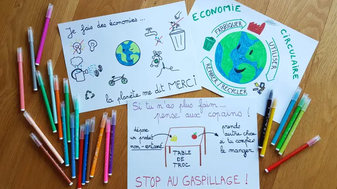 Je fais des économies ...
la planète me dit MERCI
ECONOMIE
CIRCULAIRE
FABRIQUER
UTILISER
RECYCLER
Si tu n'as plus faim ...
pense aux copains !
dépose
un produit
non-entamé
prends
autre chose
si tu comptes
le manger
TABLE
DE
TROC
STOP AU GASPILLAGE !